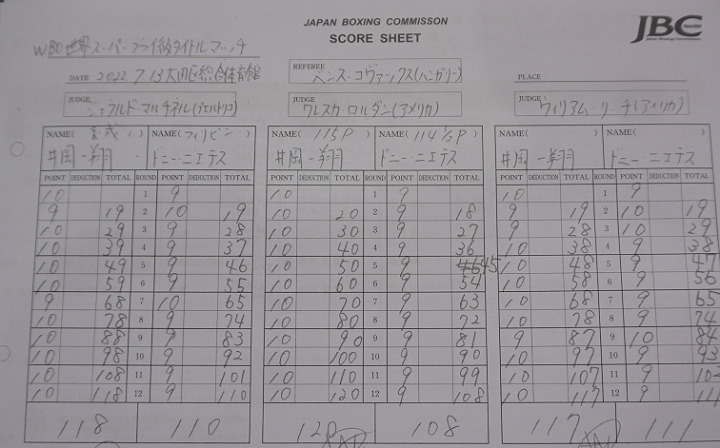 JAPAN BOXING COMMISSON
SCORE SHEET
JBC
WBO世界スーパーフライ級タイトルマッチ
DATE 2022 7.13 大田区総合体育館
REFEREE ベンス・コヴァックス(ハンガリー)
PLACE
JUDGE ジェラルド・マルチネル(プエルトリコ)
JUDGE ワレスカ ロルダン(アメリカ)
JUDGE ウィリアム・リーチ(アメリカ)
NAME( 志成 ) NAME( フィリピン NAME( 115P ) NAME( 114½P NAME( ) NAME( )
井岡一翔 ドニー・ニエテス 井岡一翔 ドニー・ニエテス 井岡一翔 ドニー・ニエテス
POINT DEDUCTION TOTAL ROUND POINT DEDUCTION TOTAL POINT DEDUCTION TOTAL ROUND POINT DEDUCTION TOTAL POINT DEDUCTION TOTAL ROUND POINT DEDUCTION TOTAL
10 1 9 10 1 9 10 1 9
9 19 2 10 19 10 20 2 9 18 9 19 2 10 19
10 29 3 9 28 10 30 3 9 27 9 28 3 10 29
10 39 4 9 37 10 40 4 9 36 10 38 4 9 38
10 49 5 9 46 10 50 5 9 45 10 48 5 9 47
10 59 6 9 55 10 60 6 9 54 10 58 6 9 56
9 68 7 10 65 10 70 7 9 63 10 68 7 9 65
10 78 8 9 74 10 80 8 9 72 10 78 8 9 74
10 88 9 9 83 10 90 9 9 81 9 87 9 10 84
10 98 10 9 92 10 100 10 9 90 10 97 10 9 93
10 108 11 9 101 10 110 11 9 99 10 107 11 9 102
10 118 12 9 110 10 120 12 9 108 10 117 12 9 111
118 110 120 108 117 111